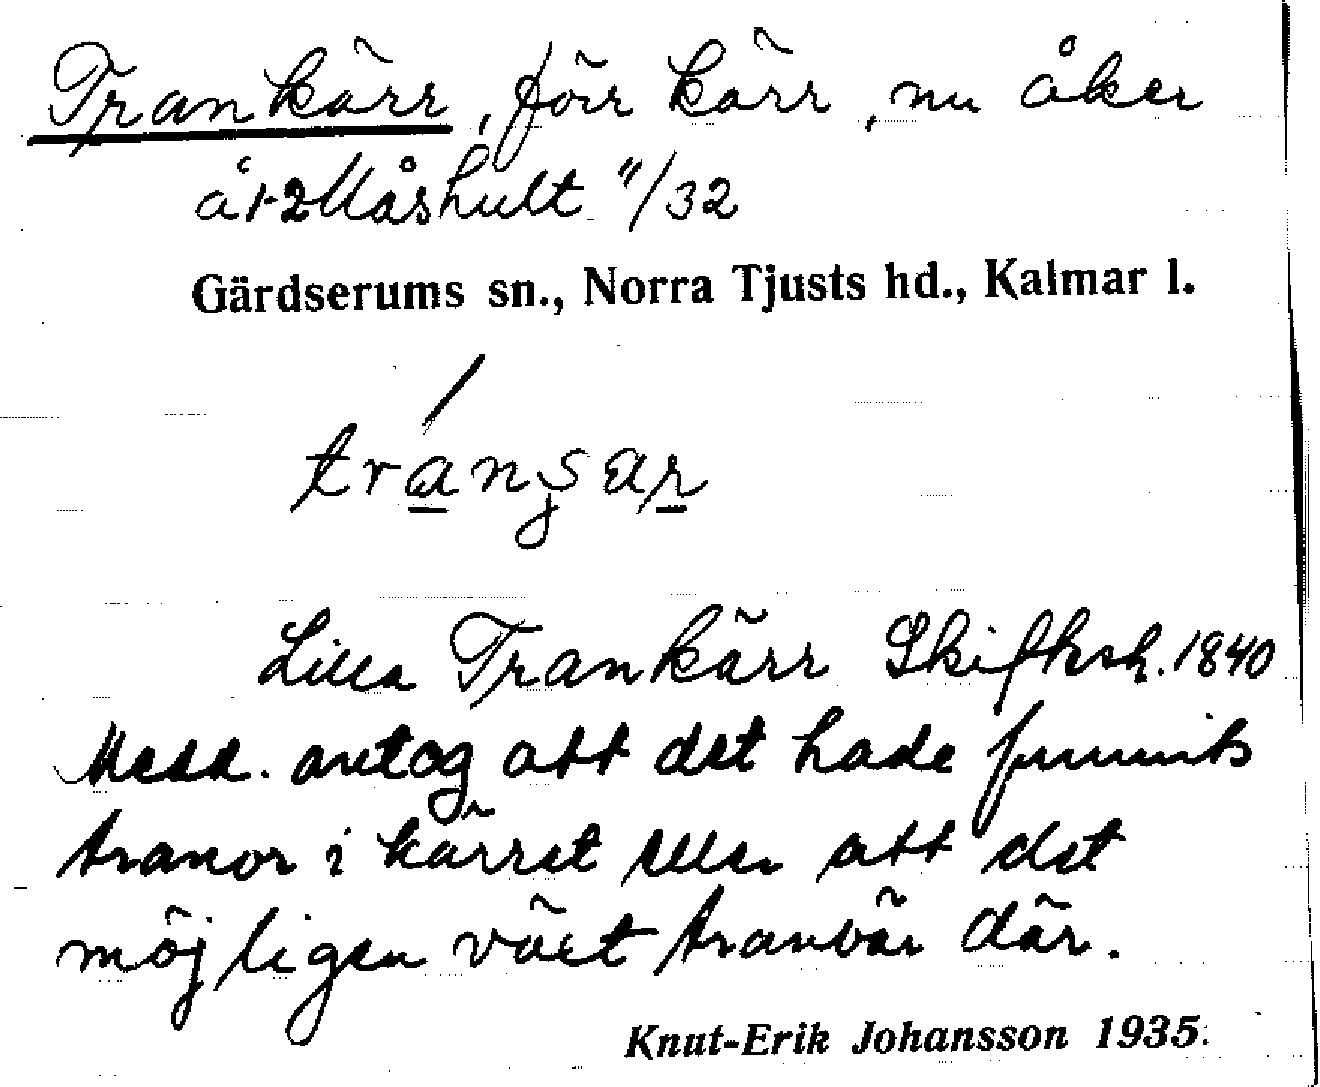 Trankärr, förr kärr, nu åker
åt Måshult "/32
Gärdserums sn., Norra Tjusts hd., Kalmar l.
Lilla Trankärr Skifteh. 1840
Medd. antog att det hade funnits
tranor i kärret eller att det
möjligen växt tranbär där.
Knut-Erik Johansson 1935.